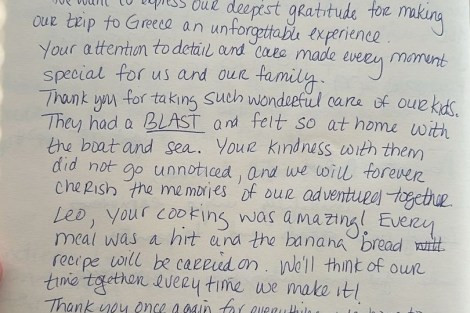 We want to express our deepest gratitude for making
our trip to Greece an unforgettable experience.
Your attention to detail and care made every moment
special for us and our family.
Thank you for taking such wonderful care of our kids.
They had a BLAST and felt so at home with
the boat and sea. Your kindness with them
did not go unnoticed, and we will forever
cherish the memories of our adventures together
Leo, your cooking was amazing! Every
meal was a hit and the banana bread
recipe will be carried on. We'll think of our
time together every time we make it!
Thank you once again for everything